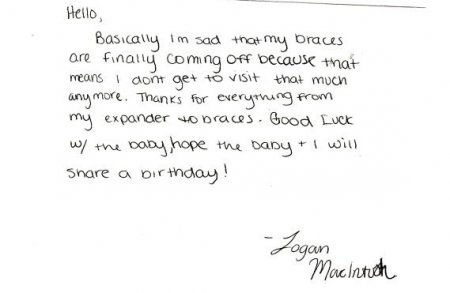 Hello,
Basically Im sad that my braces
are finally coming off because that
means I dont get to visit that much
anymore. Thanks for everything from
my expander to braces. Good Luck
w/ the baby, hope the baby + I will
share a birthday!
- Logan
MacIntosh